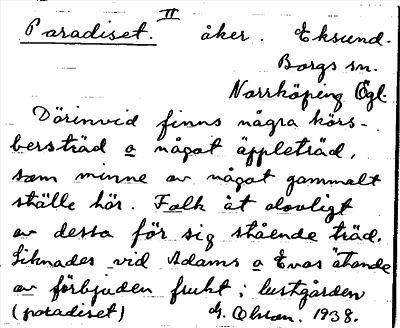 II
Paradiset. åker. Eksund.
Borgs sn.
Norrköping Ögl.
Därinvid finns några körs-
bersträd o något äppleträd,
som minne av något gammalt
ställe här. Folk åt olovligt
av dessa för sig stående träd.
Liknades vid Adams o Evas ätande
av förbjuden frukt i lustgården
(paradiset) G. Olsson. 1938.